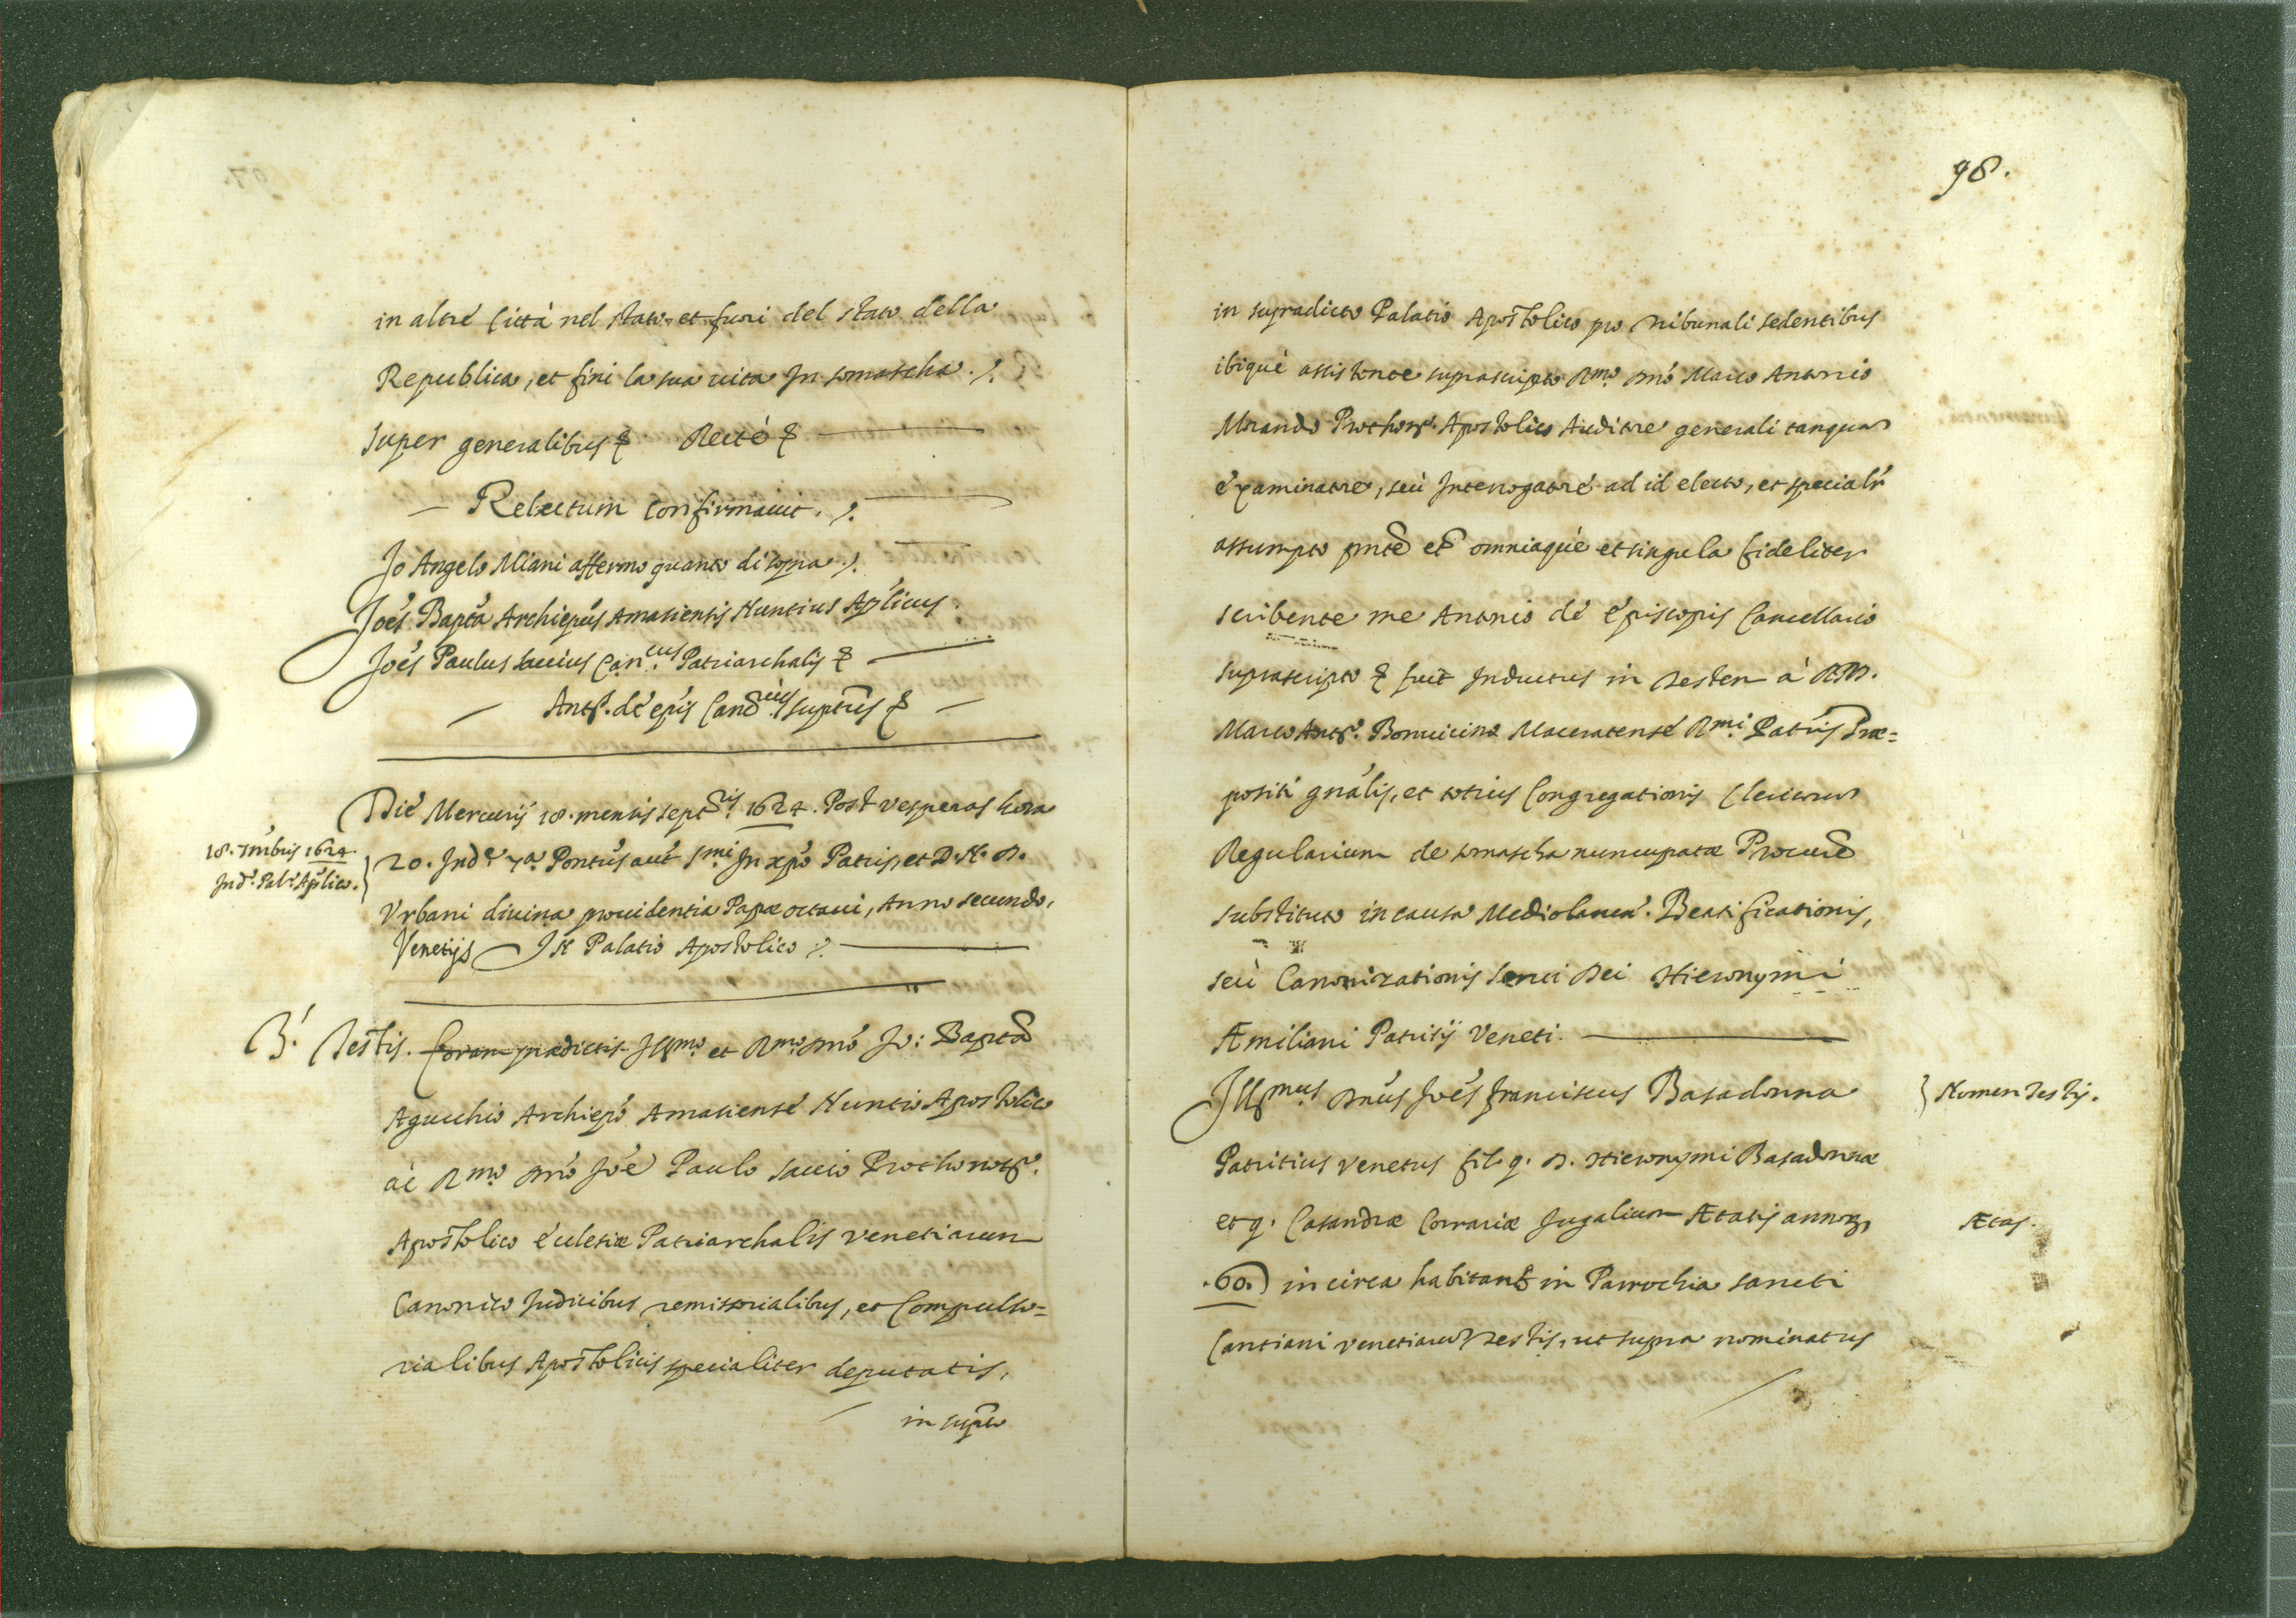 in altre Città nel stato, et fuori del stato della
Republica, et finì la sua vita In somascha ./.
Super generalibus & Recte &
Relectum Confirmavit. ./.
Jo Angelo Miani affermo quanto di sopra ./.
Joẽs Bapta Archiepũs Amasiensis Nuntius Aplicus.
Joẽs Paulus Saccius Can.cus Patriarchalis &
Ant.s de epis Canc.rius suptus &
Die Mercurij 18. mensis Sept.ris 1624. Post vesperas hora
18. 7mbris 1624.
Ind.e Pal.o Aplico.
20. Ind.e 7.a Pontus aut S.mi In xpo Patris, et D. N. D.
Vrbani divina providentia Papæ octavi, Anno secundo,
Venetijs In Palatio Apostolico ./.
3.s Testis. Coram prædictis Ill.mo et R.mo Dno Jo: Bapta
Agucchio Archiepo Amasiense Nuntio Apostolico
ac R.mo Dno Joe Paulo Saccio Prothonot.o
Apostolico ecclesiæ Patriarchalis Venetiarum
Canonico Judicibus remissorialibus, et Compulso=
rialibus Apostolicis specialiter deputatis,
in supto
98.
in supradicto Palatio Apostolico pro Tribunali sedentibus
ibique assistente suprascripto R.mo Dno Marco Antonio
Morando Prothon.o Apostolico Auditore generali tanquam
examinatore, seù Interrogatore ad id electo, et specialr
assumpto pnte et omniaque et singula fideliter
scribente me Antonio de episcopis Cancellario
suprascripto & fuit Inductus in Testem à R.D.
Marco Ant.o Bonvicino Maceratense R.mi Patris Præ=
positi gnalis, et totius Congregationis Clericorum
Regularium de somascha nuncupatæ Procure
substituto in causa Mediolanen. Beatificationis,
seù Canonizationis Servi Dei Hieronymi
Æmiliani Patritij Veneti.
Ill.mus Dnus Joes franciscus Basadonna
Nomen Testis.
Patritius Venetus fil. q. D. Hieronymi Basadonnæ
et q. Casandræ Corrariæ Jugalium Ætatis annor.
Ætas.
.60.) in circa habitans in Parrochia sancti
Cantiani Venetiarum Testis, ut supra nominatus